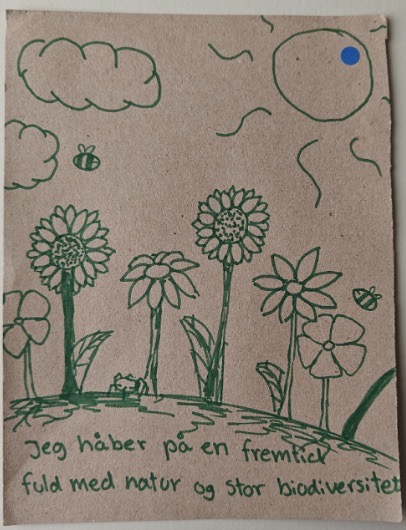 Jeg håber på en fremtid
fuld med natur og stor biodiversitet